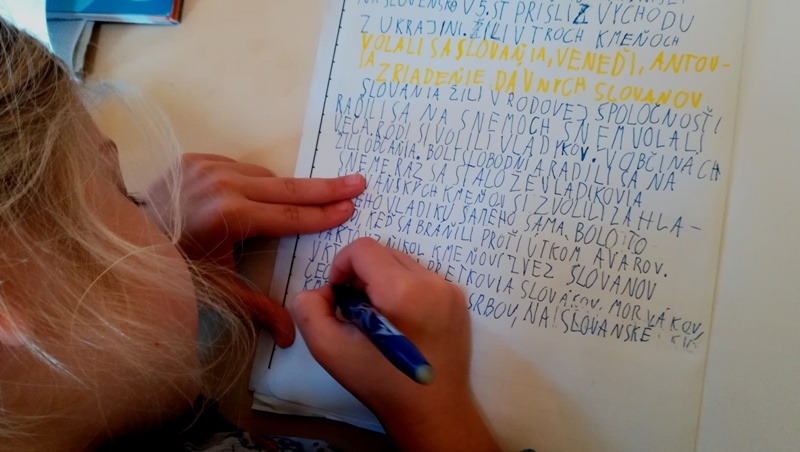 NA SLOVENSKO V 5.ST PRIŠLI Z VÝCHODU
Z UKRAJINI. ŽILI V TROCH KMEŇOCH
VOLALI SA SLOVAŇIA, VENEĎI, ANTOV-
IA ZRIADENIE DÁVNYCH SLOVANOV
SLOVANIA ŽILI V RODOVEJ SPOLOČNOSŤI
RADILI SA NA SNEMOCH SNEM VOLALI
VEČA. RODI SI VOLILI VLADYKOV. V OBČINÁCH
ŽILI OBČANIA. BOLI SLOBODNÍ A RADILI SA NA
SNEME RAZ SA STALO ŽE VLADIKOVIA
KMEŇOU SI ZVOLILI ZA HLA-
VLADIKU SAMEHO SAMA. BOLO TO
KEĎ SA BRÁNILI PROTI ÚTKOM AVAROV.
KMEŇOV ZVEZ SLOVANOV
PREDKOVIA SLOVÁKOV, MORVÁKOV,
SRBOV, NA SLOVANSKÉ